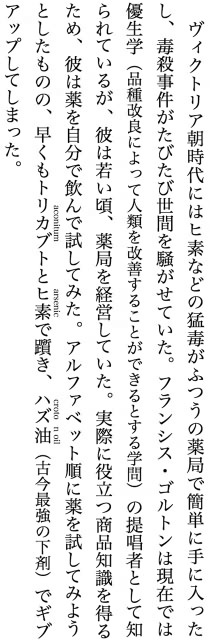 ヴィクトリア朝時代にはヒ素などの猛毒がふつうの薬局で簡単に手に入った
し、毒殺事件がたびたび世間を騒がせていた。フランシス・ゴルトンは現在では
優生学（品種改良によって人類を改善することができるとする学問）の提唱者として知
られているが、彼は若い頃、薬局を経営していた。実際に役立つ商品知識を得る
ため、彼は薬を自分で飲んで試してみた。アルファベット順に薬を試してみよう
acconitum arsenic croto n oil
としたものの、早くもトリカブトとヒ素で躓き、ハズ油（古今最強の下剤）でギブ
アップしてしまった。